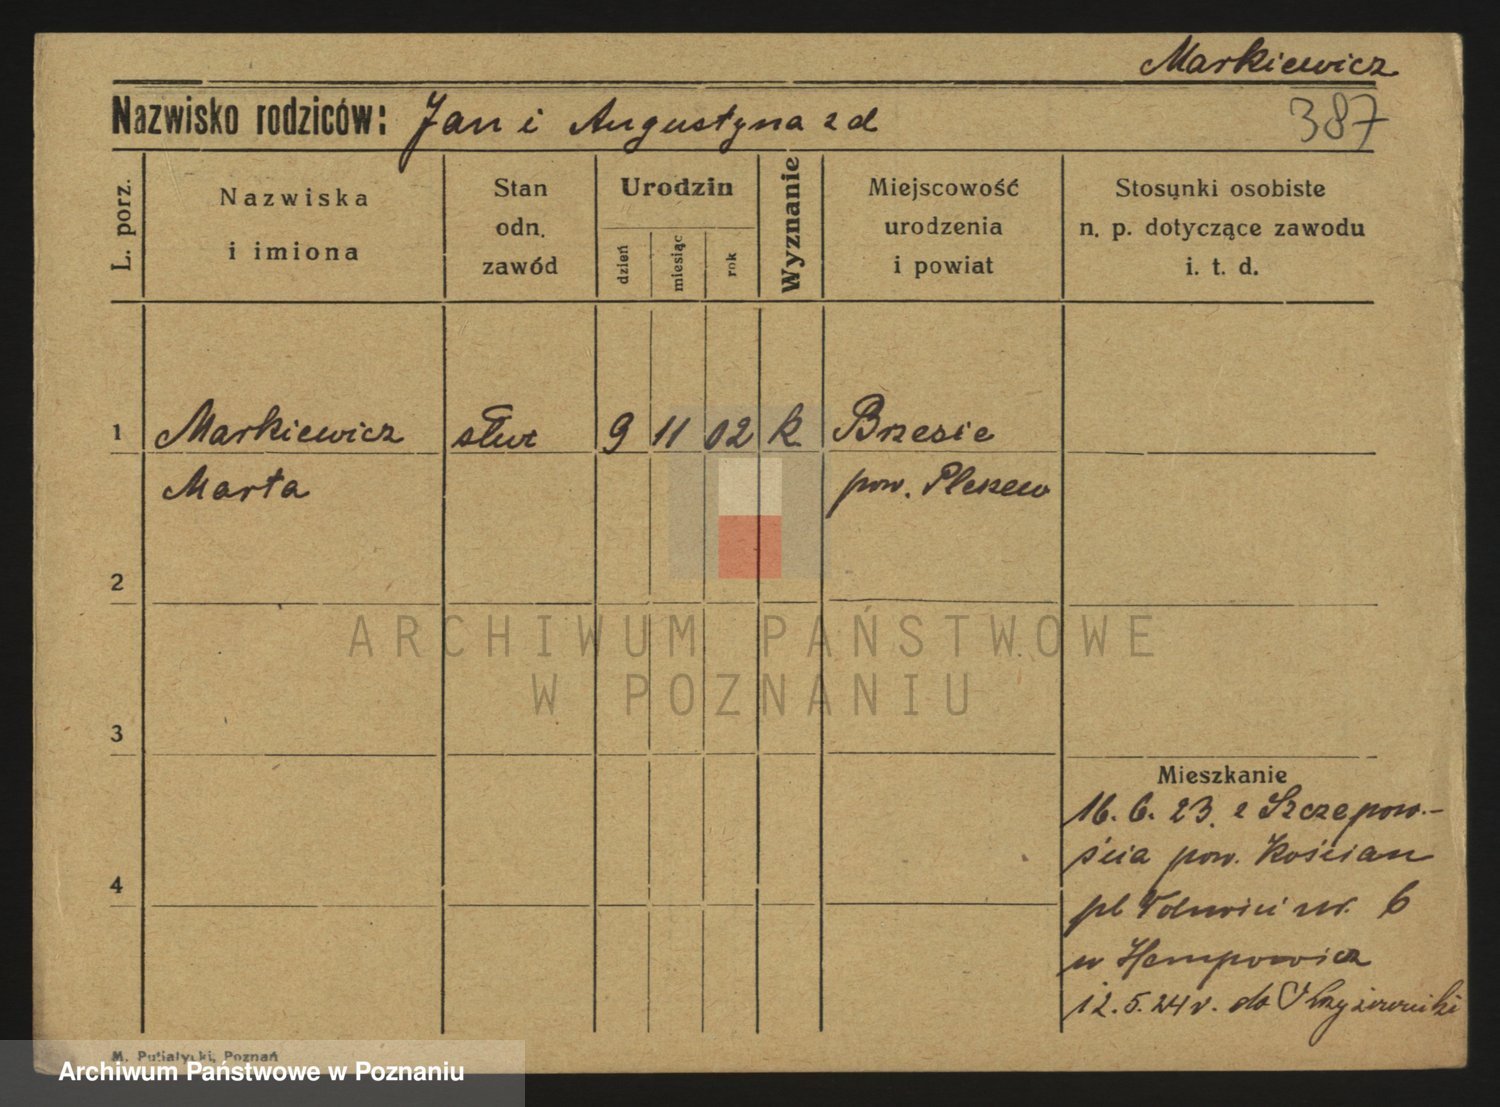 Markiewicz
Nazwisko rodziców: Jan i Augustyna z d
387
L. porz.
Nazwiska
i imiona
Stan
odn.
zawód
Urodzin
dzień
miesiąc
rok
Wyznanie
Miejscowość
urodzenia
i powiat
Stosunki osobiste
n. p. dotyczące zawodu
i. t. d.
1 Markiewicz służ 9 11 02 k Brzezie
Marta pow. Pleszew
2
3
4
ARCHIWUM PAŃSTWOWE
W POZNANIU
Mieszkanie
16. 6. 23. z Szczepow-
ścia pow. Kościan
pl nr. 6
w
12. 5. 24 r. do
M. Putiatycki, Poznań
Archiwum Państwowe w Poznaniu